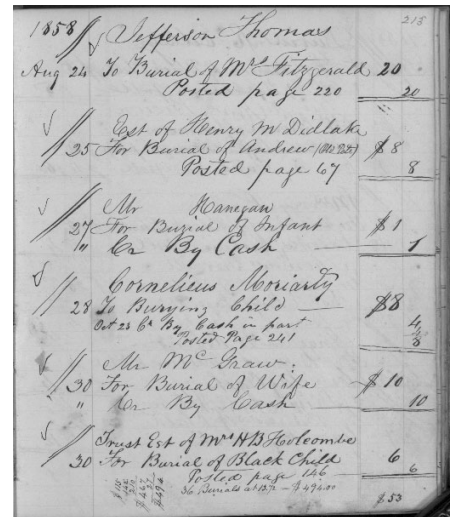 213
1858 Jefferson Thomas
Aug 24 To Burial of Mrs Fitzgerald 20
Posted page 220 20
Est of Henry M Didlake
25 For Burial of Andrew $8
Posted page 67 8
Mr Hanegan
27 For Burial of Infant $1
" Cr By Cash 1
Cornelieus Moriarty
28 To Burying Child $8
Oct 23 Cr By Cash in part 4
Posted Page 241
8
Mr McGraw
30 For Burial of Wife $10
" Cr By Cash 10
Trust Est of Mrs H B Holcombe
30 For Burial of Black Child 6
Posted page 146 6
36 Burials at 13.72 — $494.00
$53